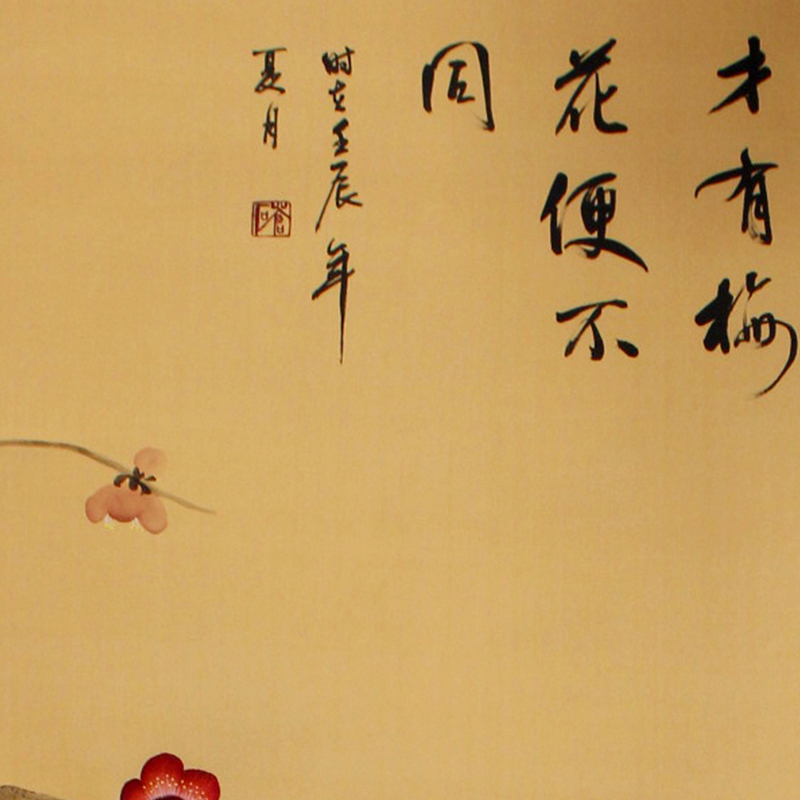 才有梅
花便不
同
时在壬辰年
夏月